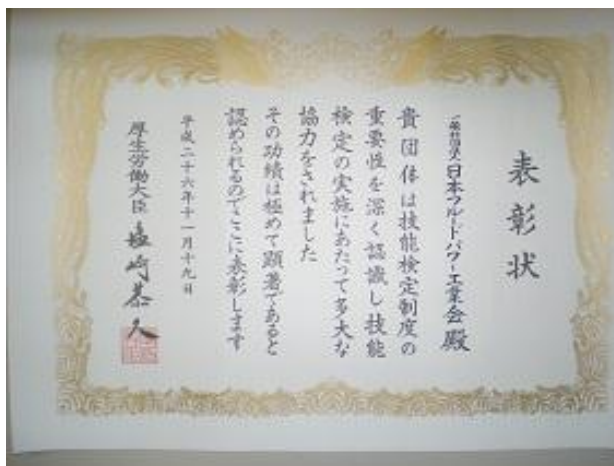 表彰状
一般社団法人 日本フルードパワー工業会殿
貴団体は技能検定制度の
重要性を深く認識し技能
検定の実施にあたって多大な
協力をされました
その功績は極めて顕著であると
認められるのでここに表彰します
平成二十六年十一月十九日
厚生労働大臣 塩崎恭久